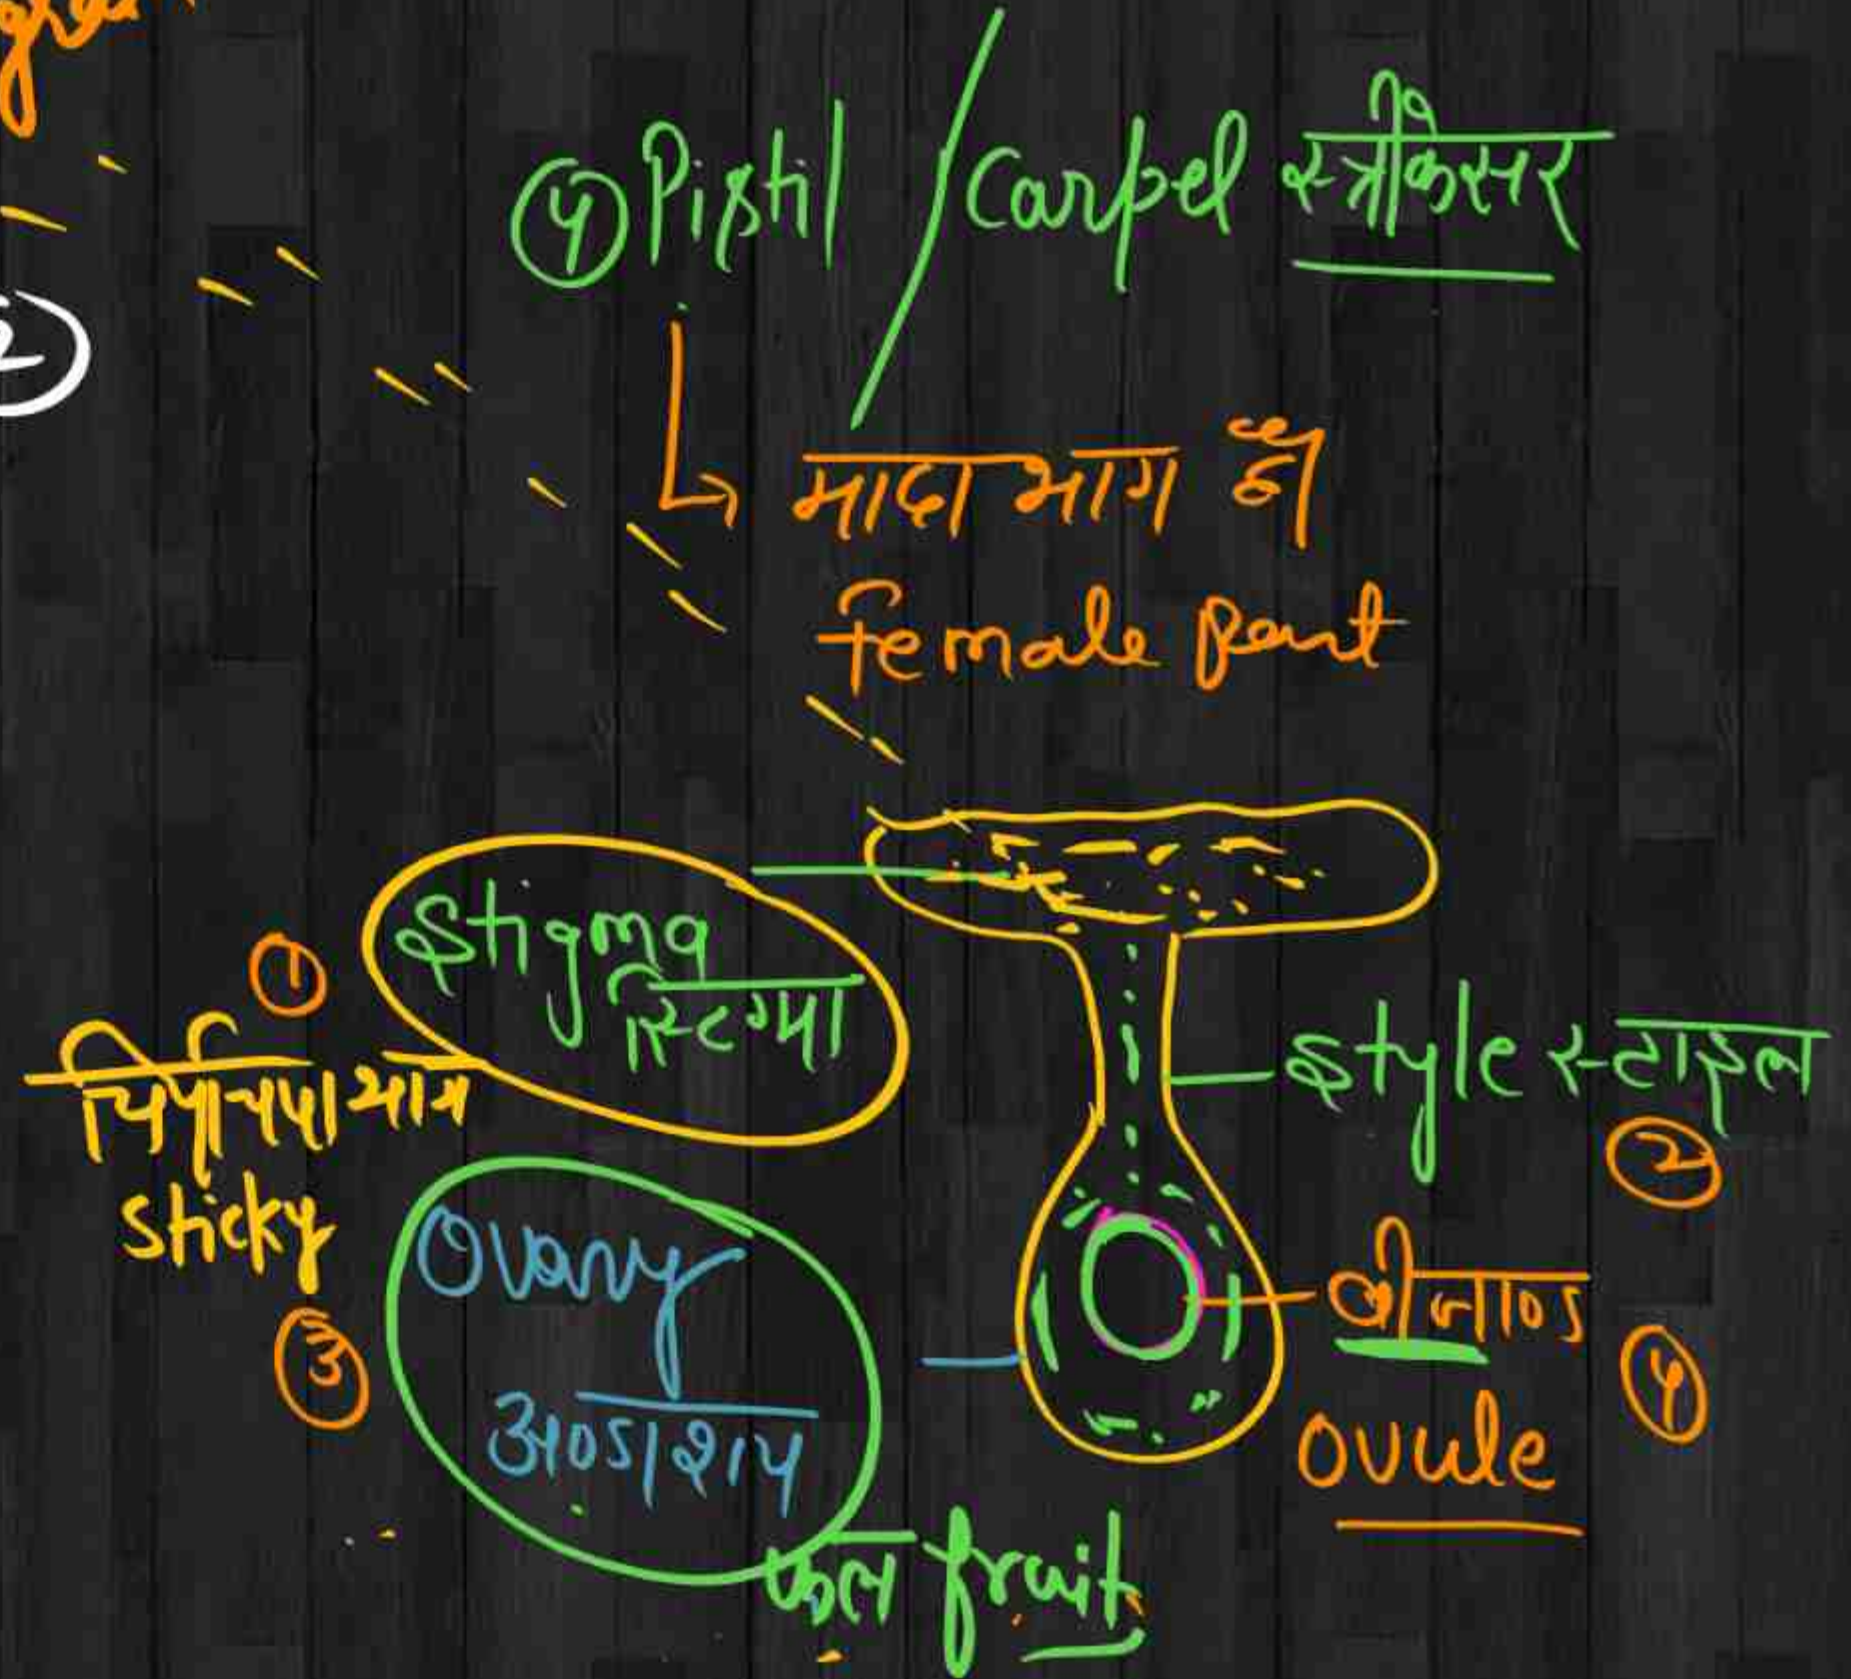 ④ Pistil / Carpel स्त्रीकेसर
मादा भाग है
female Part
① Stigma
स्टिग्मा
चिपचिपा भाग
sticky
style स्टाइल
②
③ Ovary
अण्डाशय
फल fruit
बीजाण्ड
④
ovule